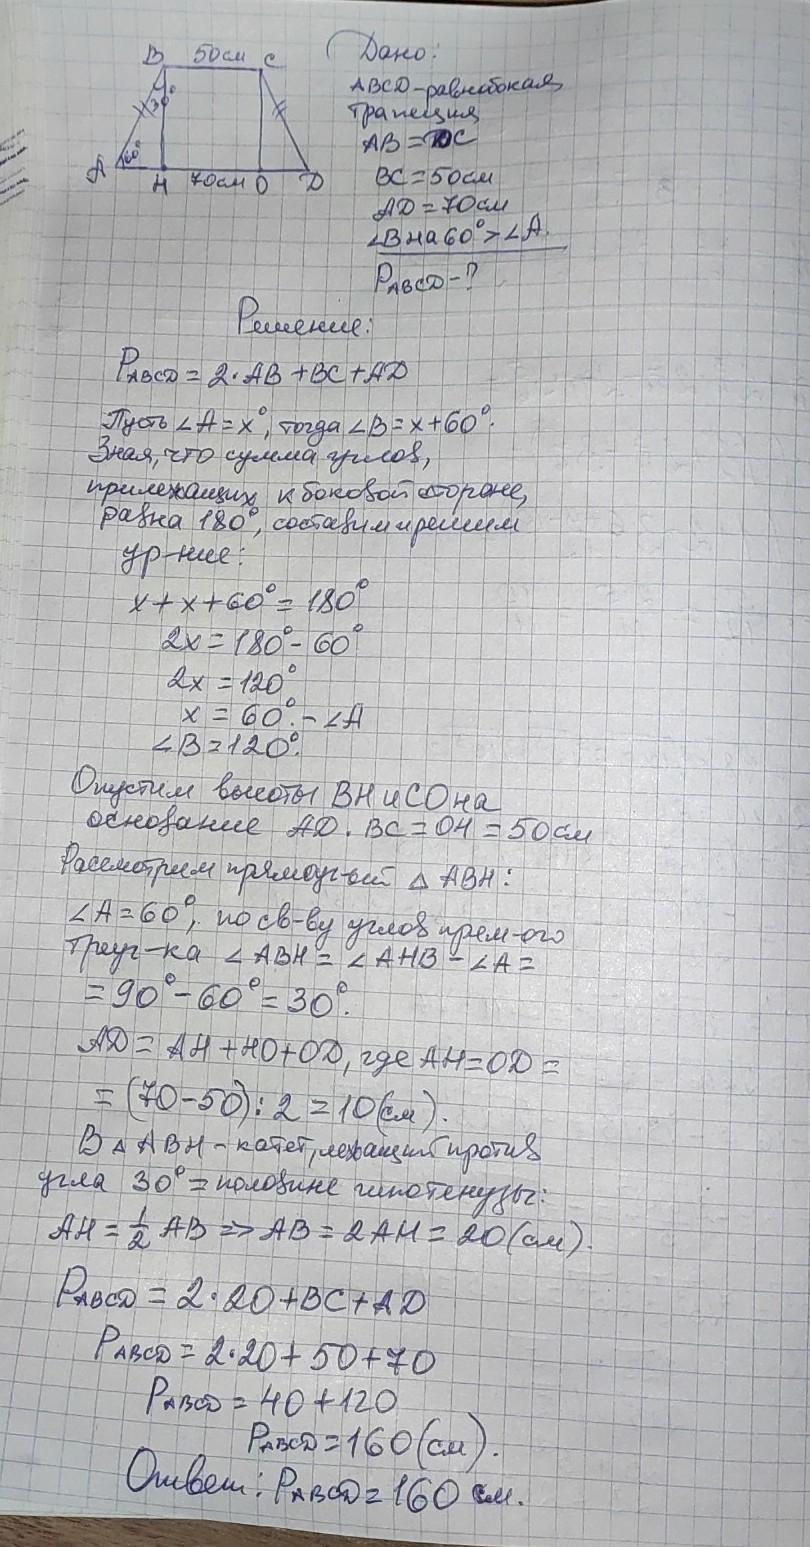 B 50см C
30°
A 60° H 70см O D
Дано:
ABCD-равнобокая
трапеция
AB=DC
BC=50см
AD=70см
∠B на 60°>∠A.
PABCD-?
Решение:
PABCD = 2·AB+BC+AD
Пусть ∠A=x°, тогда ∠B=x+60°.
Зная, что сумма углов,
прилежащих к боковой стороне,
равна 180°, составим и решим
ур-ние:
x+x+60°=180°
2x=180°-60°
2x=120°
x=60°.-∠A
∠B=120°.
Опустим высоты BH и CO на
основание AD. BC=OH=50см
Рассмотрим прямоуг-ый △ABH:
∠A=60°, по св-ву углов прям-ого
треуг-ка ∠ABH=∠AHB-∠A=
=90°-60°=30°.
AD=AH+HO+OD, где AH=OD=
=(70-50):2=10(см).
В △ABH-катет, лежащий против
угла 30°=половине гипотенузы:
AH=1/2 AB=>AB=2AH=20(см).
PABCD=2·20+BC+AD
PABCD=2·20+50+70
PABCD=40+120
PABCD=160(см).
Ответ: PABCD=160 см.